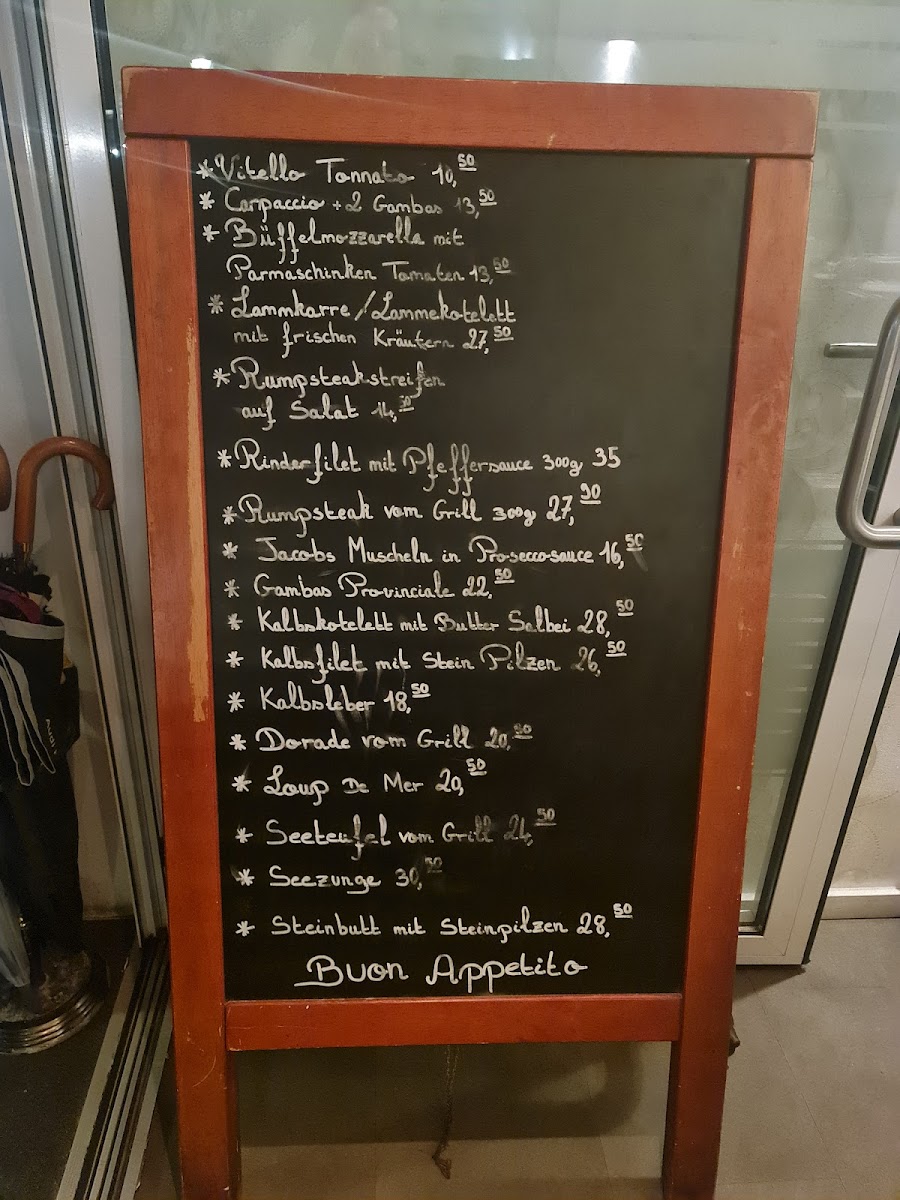 * Vitello Tonnato 10,50
* Carpaccio + 2 Gambas 13,50
* Büffelmozzarella mit
Parmaschinken Tomaten 13,50
* Lammkarre / Lammekotelett
mit frischen Kräutern 27,50
* Rumpsteakstreifen
auf Salat 14,50
* Rinderfilet mit Pfeffersauce 300g 35
* Rumpsteak vom Grill 300g 27,90
* Jacobs Muscheln in Proseccosauce 16,50
* Gambas Provinciale 22,50
* Kalbskotelett mit Butter Salbei 28,50
* Kalbsfilet mit Stein Pilzen 26,50
* Kalbsleber 18,50
* Dorade vom Grill 20,50
* Loup De Mer 20,50
* Seeteufel vom Grill 24,50
* Seezunge 30,50
* Steinbutt mit Steinpilzen 28,50
Buon Appetito